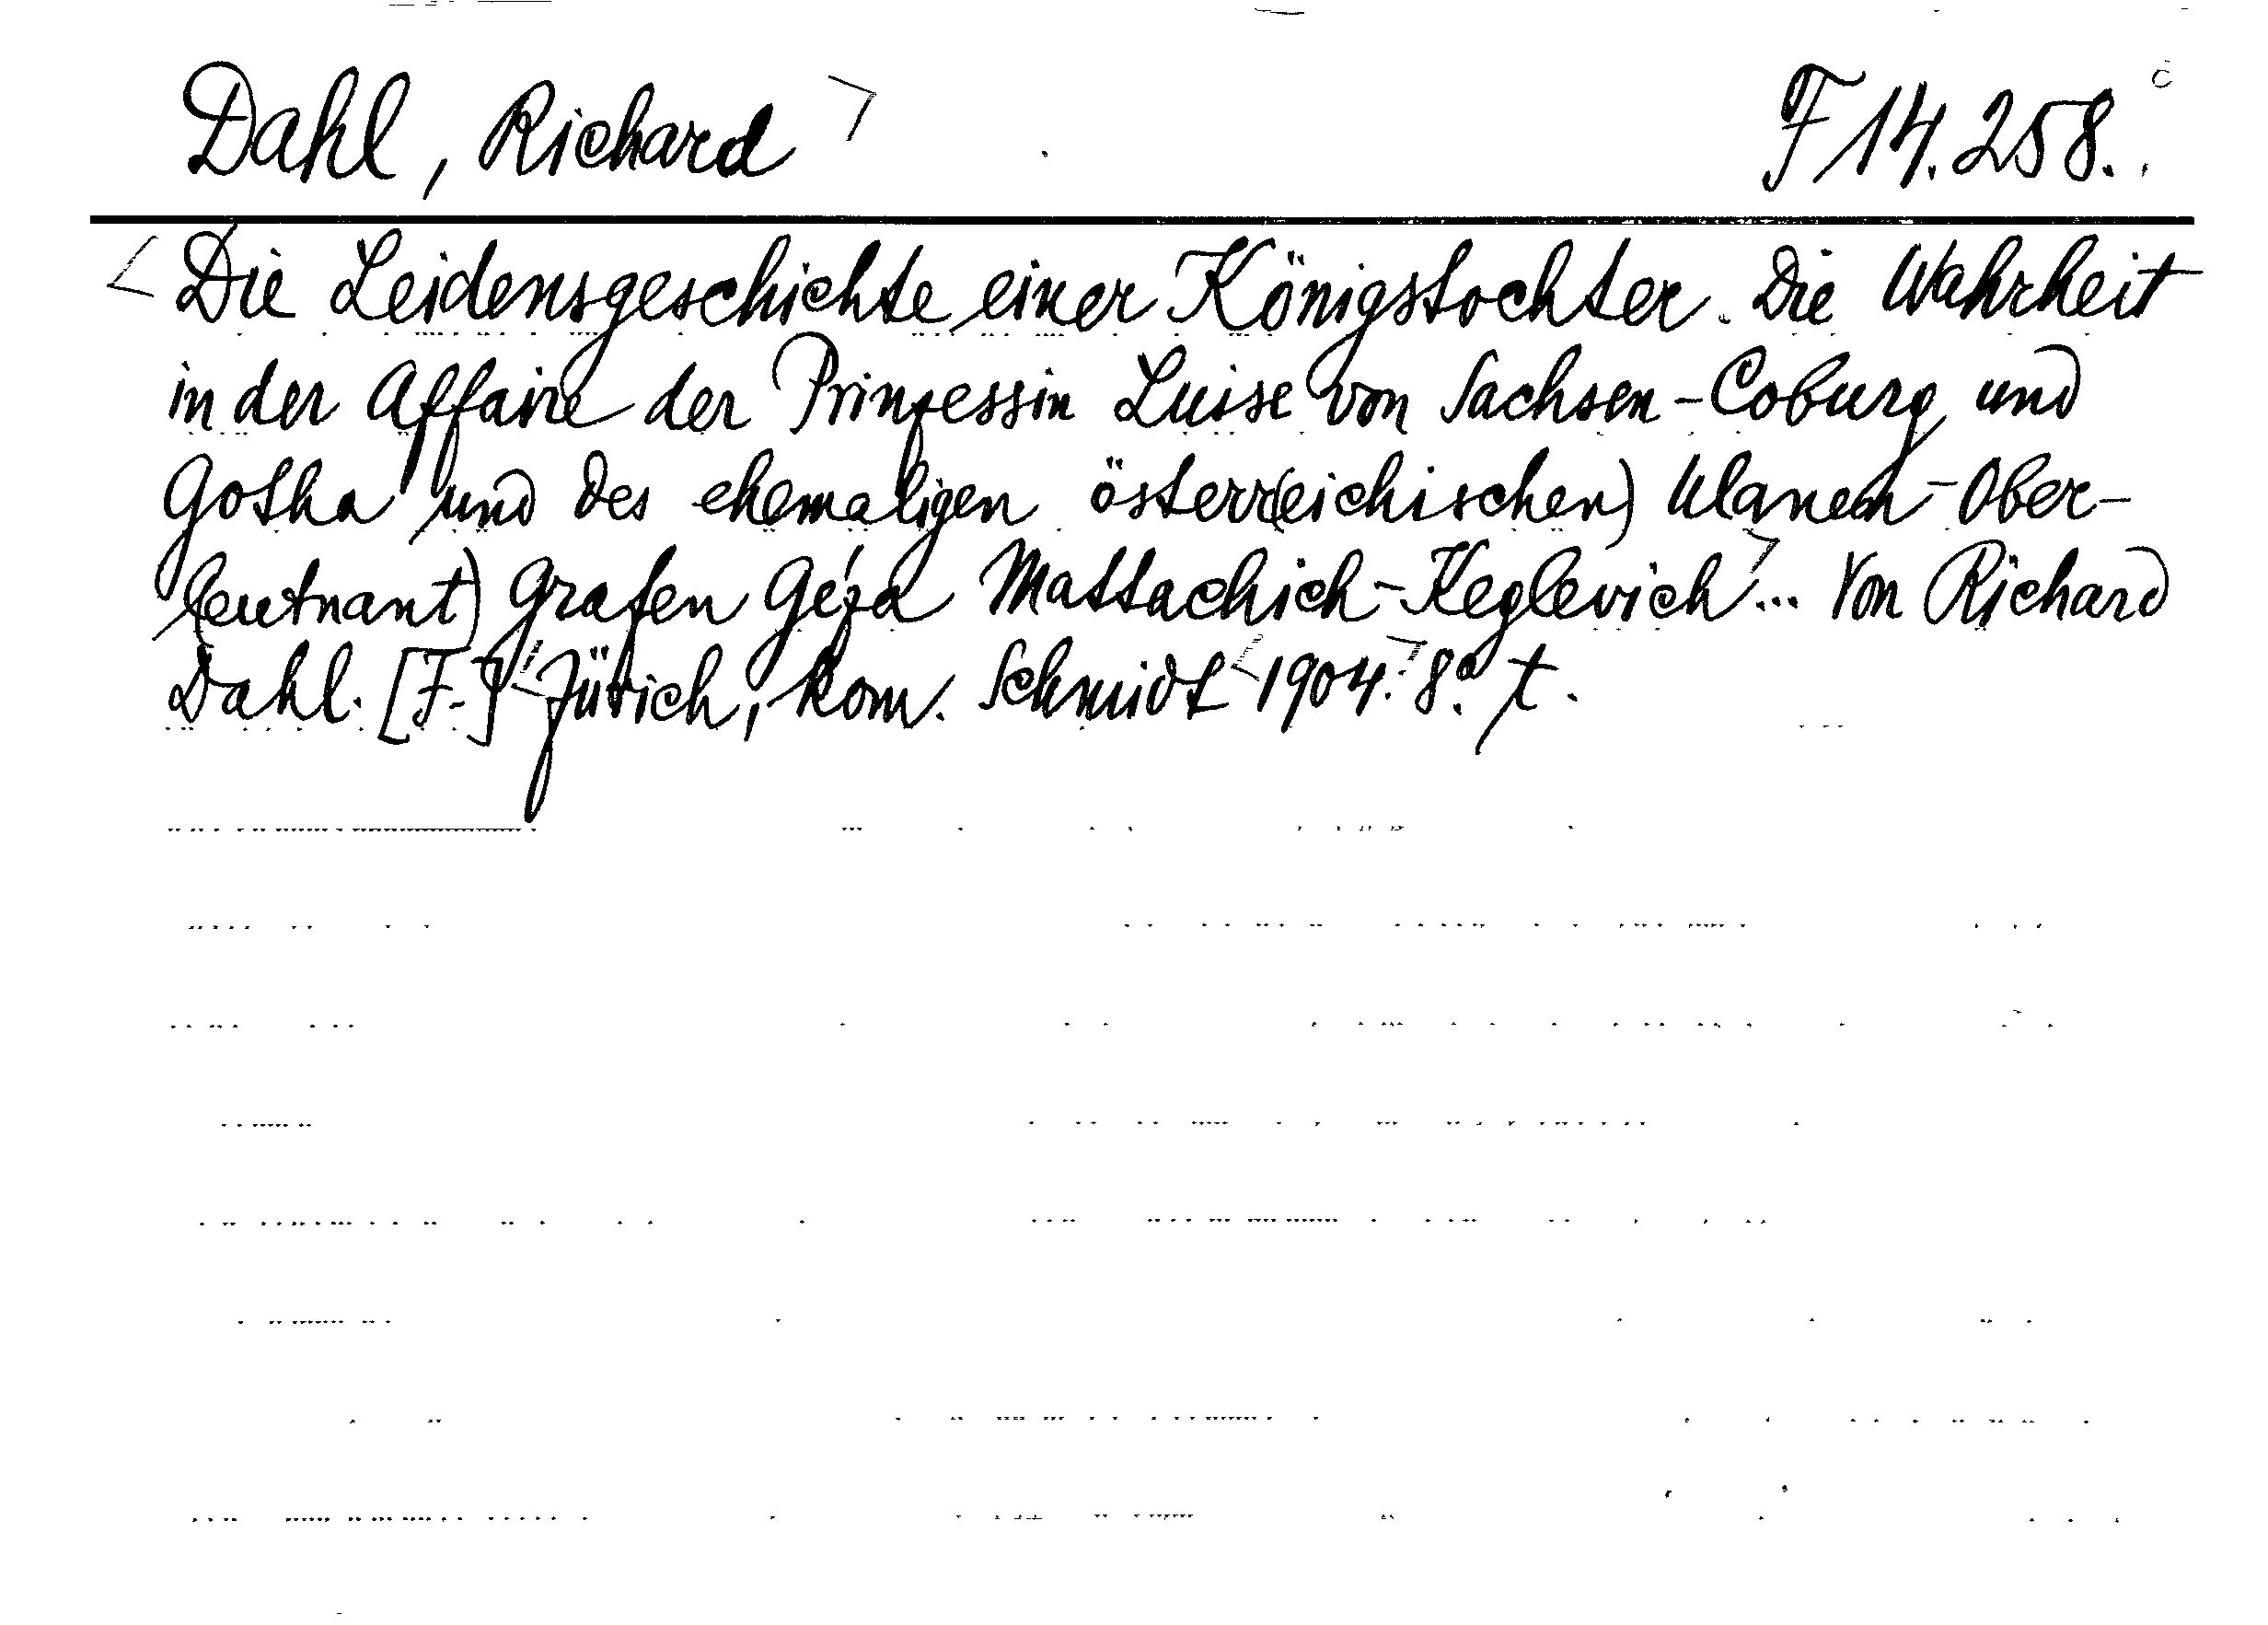 Dahl, Richard F 14.258.
Die Leidensgeschichte einer Königstochter. Die Wahrheit
in der Affaire der Prinzessin Luise von Sachsen-Coburg und
Gotha und des ehemaligen österr(eichischen) Ulanen-Ober-
(leutnant) Grafen Géza Mattachich-Keglevich... Von Richard
Dahl. [F.] Zürich, Kom. Schmidt 1904. 8°. t.